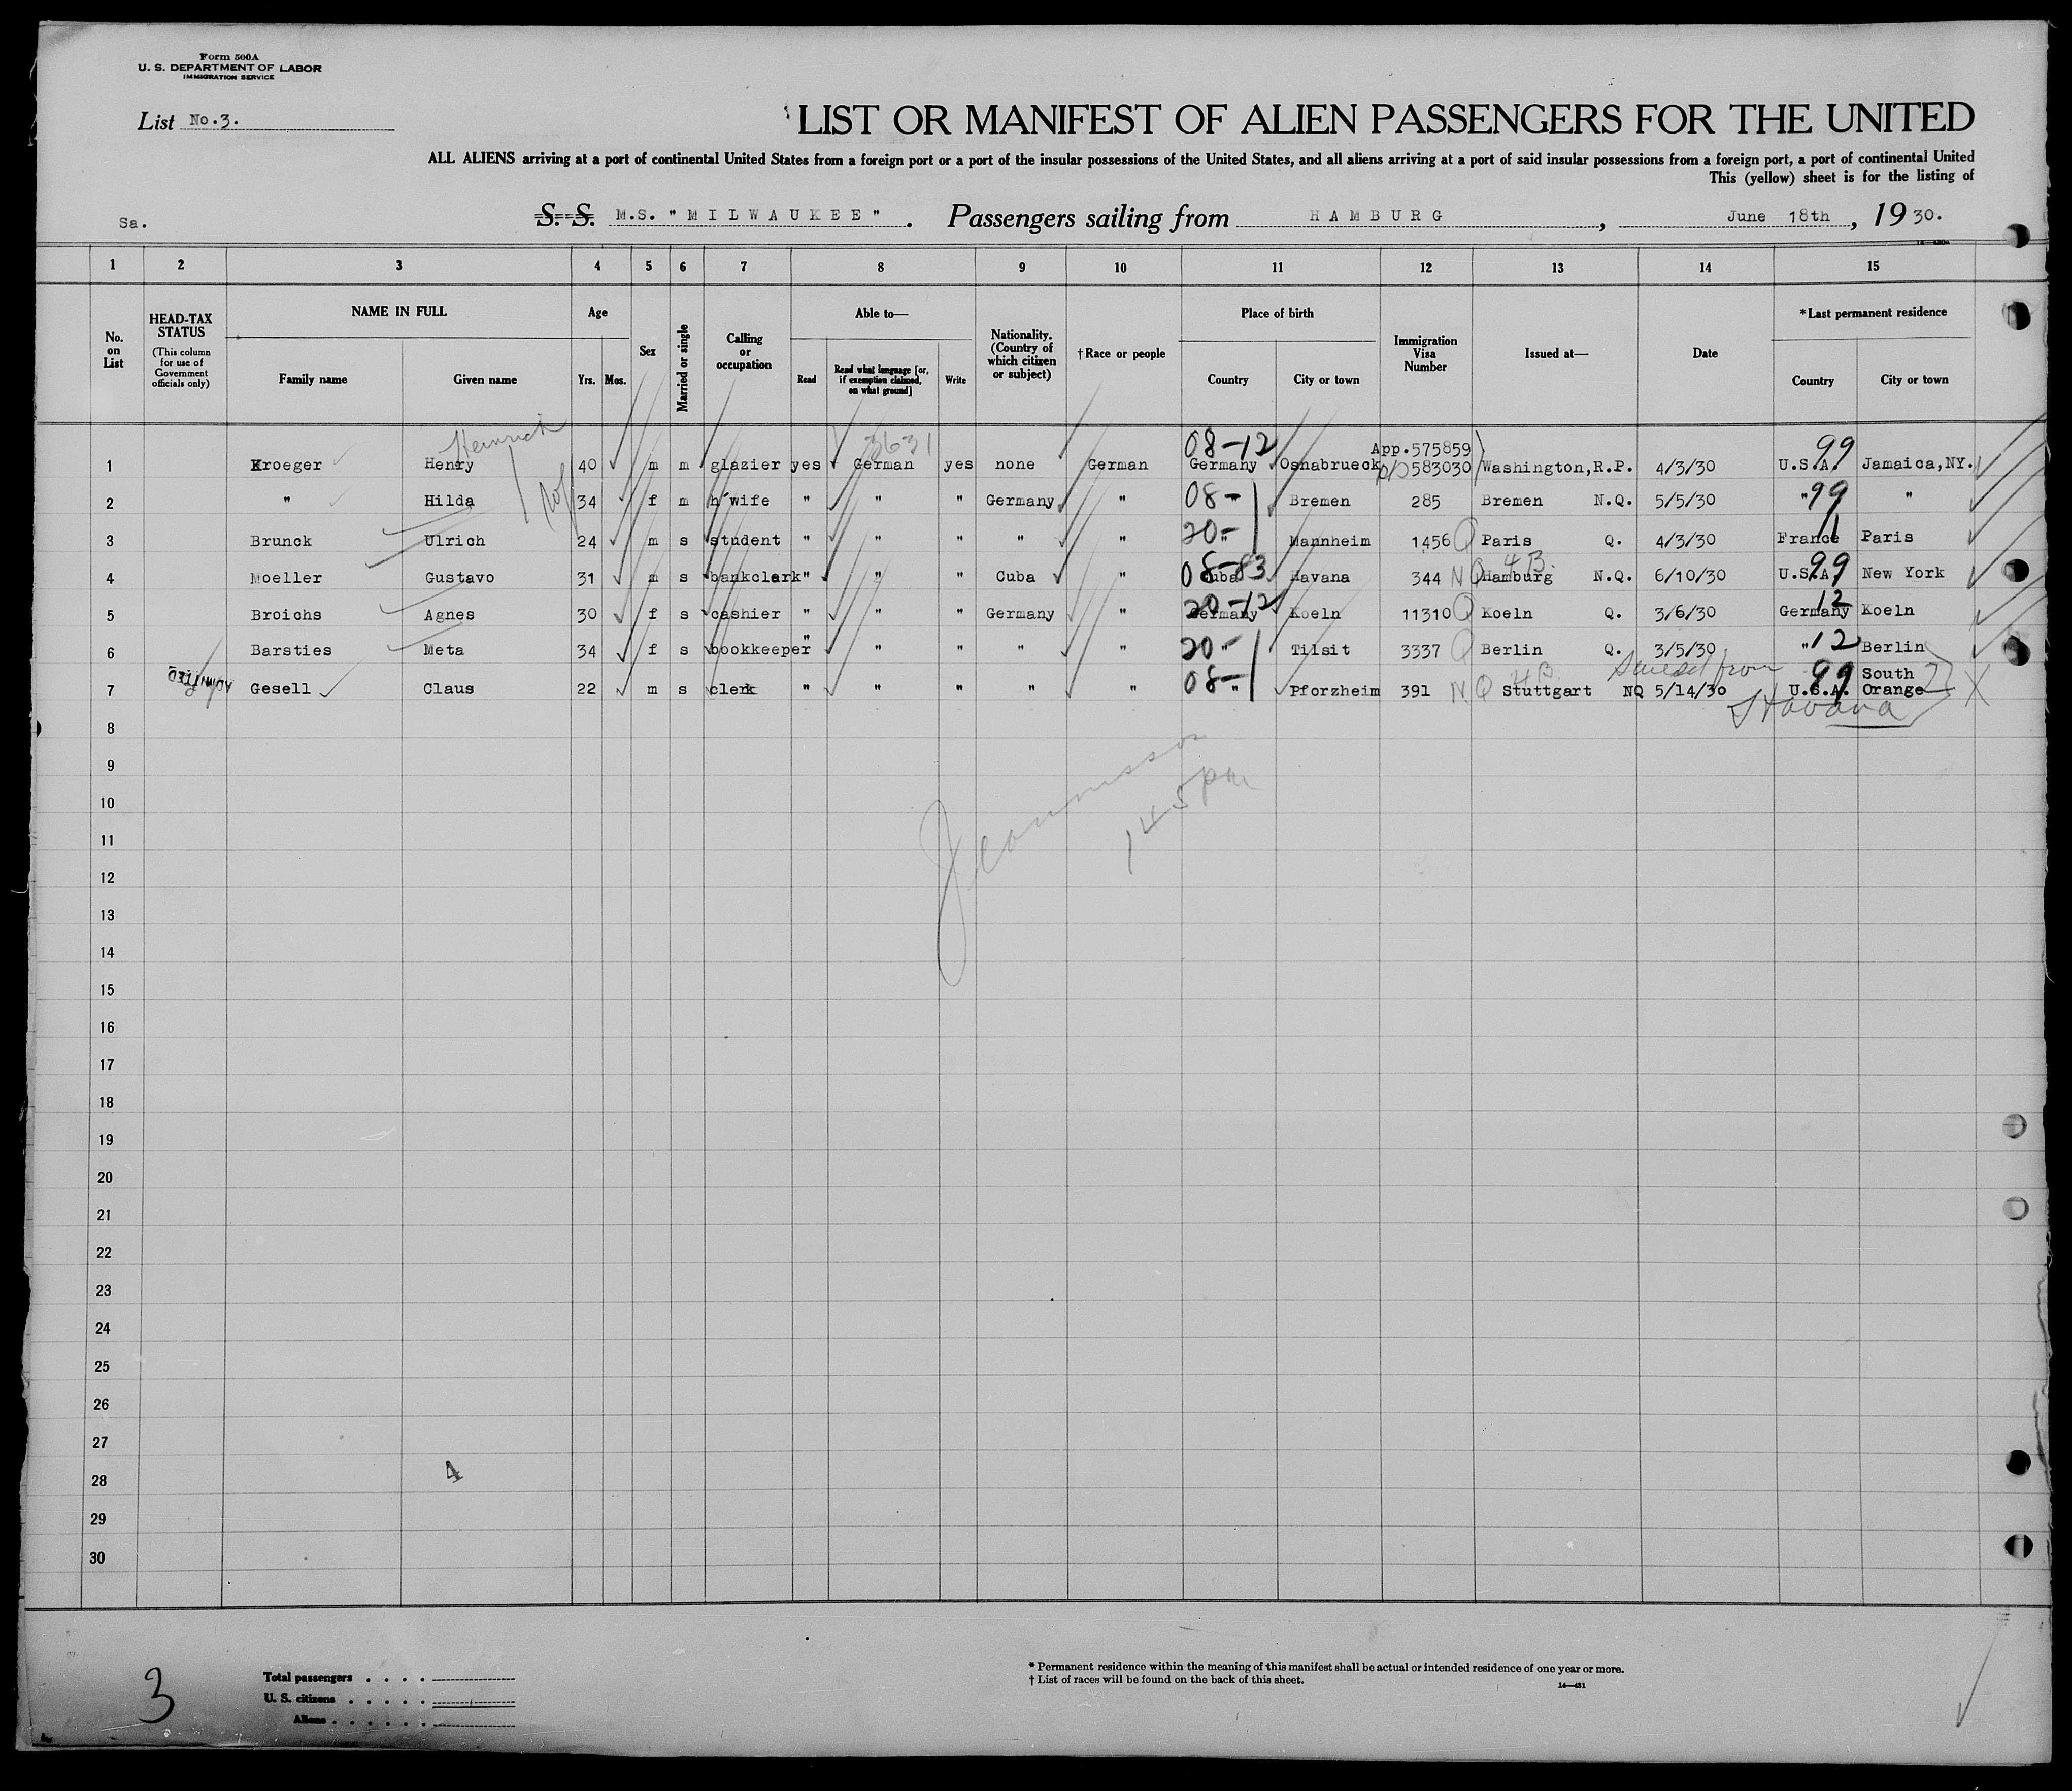 Form 500A
U. S. DEPARTMENT OF LABOR
IMMIGRATION SERVICE
List No.3.
LIST OR MANIFEST OF ALIEN PASSENGERS FOR THE UNITED
ALL ALIENS arriving at a port of continental United States from a foreign port or a port of the insular possessions of the United States, and all aliens arriving at a port of said insular possessions from a foreign port, a port of continental United
This (yellow) sheet is for the listing of
Sa. S. S. M.S. "MILWAUKEE". Passengers sailing from HAMBURG, June 18th, 1930.
1 2 3 4 5 6 7 8 9 10 11 12 13 14 15
No. on List
HEAD-TAX STATUS
(This column for use of Government officials only)
NAME IN FULL
Family name Given name
Age
Yrs. Mos.
Sex
Married or single
Calling or occupation
Able to—
Read
Read what language [or, if exemption claimed, on what ground]
Write
Nationality. (Country of which citizen or subject)
†Race or people
Place of birth
Country City or town
Immigration Visa Number
Issued at—
Date
*Last permanent residence
Country City or town
Heinrich 3631 08-12 App.575859 99
1 Kroeger Henry 40 m m glazier yes German yes none German Germany Osnabrueck 583030 Washington,R.P. 4/3/30 U.S.A. Jamaica,NY.
2 " Hilda 34 f m h'wife " " " Germany " 08- " Bremen 285 Bremen N.Q. 5/5/30 " 99 "
3 Brunck Ulrich 24 m s student " " " " " 20- " Mannheim 1456 Q Paris Q. 4/3/30 France 11 Paris
4 Moeller Gustavo 31 m s bankclerk " " " Cuba " 08-83 Cuba Havana 344 NQ Hamburg 4B. N.Q. 6/10/30 U.S.A. 99 New York
5 Broichs Agnes 30 f s cashier " " " Germany " 20-12 Germany Koeln 11310 Q Koeln Q. 3/6/30 Germany 12 Koeln
6 Barsties Meta 34 f s bookkeeper " " " " " 20- " Tilsit 3337 Q Berlin Q. 3/5/30 " 12 Berlin
ADMITTED
7 Gesell Claus 22 m s clerk " " " " " 08- " Pforzheim 391 NQ Stuttgart 4B NQ 5/14/30 U.S.A. 99 South Orange
Havana
8
9
10
11
12
13
14
15
16
17
18
19
20
21
22
23
24
25
26
27
28
29
30
145 pm
4
3
Total passengers . . . .
U. S. citizens . . . . .
Aliens . . . . . .
* Permanent residence within the meaning of this manifest shall be actual or intended residence of one year or more.
† List of races will be found on the back of this sheet.
14—431